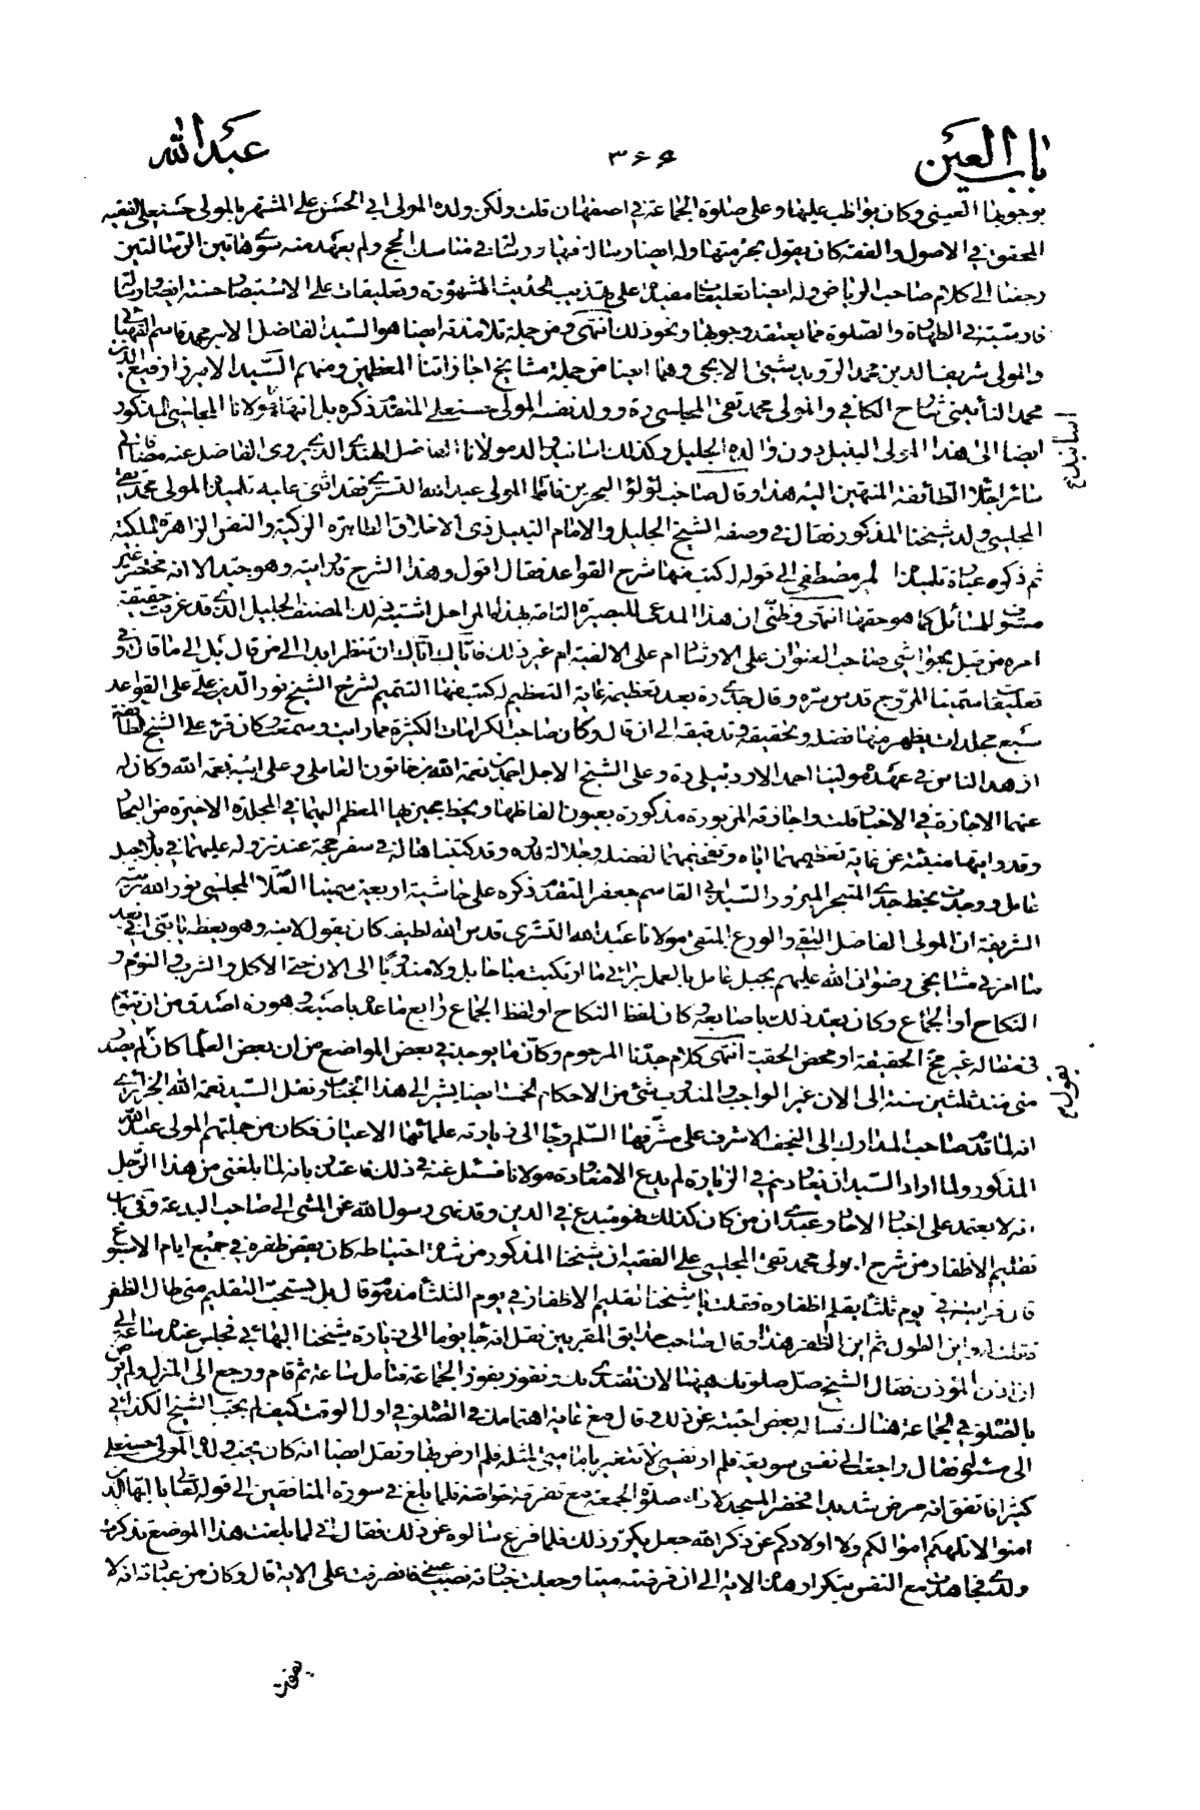 باب العين
٣٦٩
عبد الله
بوجوبها العيني وكان يواظب عليها وعلى صلوة الجماعة في اصفهان قلت ولكن ولده المولى ابي الحسن علي المشتهر بالمولى حسنعلي الفقيه
المحقق في الاصول والفقه كان يقول بحرمتها وله ايضا رسالة فيها ورسالة في مناسك الحج ولم يعهد منه سوى هاتين الرسالتين
رجعنا الى كلام صاحب الرياض وله ايضا تعليقات مفيدة على تهذيب الحديث المشهورة وتعليقات على الاستبصار حسنة ايضا ورسالة
فارسية في الطهارة والصلوة مما يعتقد وجوبها ونحو ذلك انتهى ومن جملة تلامذته ايضا هو السيد الفاضل الامير محمد قاسم القهپائي
والمولى شريف الدين محمد الرويدشتي الايجى وهما ايضا من جملة مشايخ اجازاتنا المعظمين ومنهم السيد الاميرزا رفيع الدين
محمد النائيني شارح الكافي والمولى محمد تقي المجلسي ره وولد نفسه المولى حسنعلي المتقدم ذكره بل انتهاء مولانا المجلسي المذكور
ايضا الى هذا المولى النبيل دون والده الجليل وكذلك اسانيد مولانا الفاضل الهندي الذي يروى الفاضل عنه
سائر اجلاء الطائفة المنتهين اليه هذا وقال صاحب لؤلؤ البحرين فاما المولى عبد الله التستري فقد اثنى عليه تلميذه المولى محمد تقي
المجلسي والد شيخنا المذكور فقال في وصفه الشيخ الجليل والامام النبيل ذي الاخلاق الطاهرة الزكية والنفس الزاهرة الملكية
ثم ذكره عبارة تلميذه المير مصطفى الى قوله له كتب منها شرح القواعد فقال اقول وهذا الشرح قد رايته وهو جيد الا انه مختصر غير
مستوف للمسائل كما هو حقها انتهى وظني ان هذا المدعى للبصيرة التامة بهذه المراحل اشتبه لك المصنف الجليل الذي قد عرفت حقيقة
امره من قبل بحواشي صاحب العنوان على الارشاد ام على الالفية ام غير ذلك فاياك اياك ان تنظر ابدا الى من قال بل الى ما قال وفي
تعليقات سمينا المروج قدس سره وقال جدي ره بعد تعظيمه غاية التعظيم له كتب منها التتميم لشرح الشيخ نور الدين علي على القواعد
سبع مجلدات يظهر منها فضله وتحقيقه وتدقيقه الى ان قال وكان صاحب الكرامات الكثيرة مما رايت وسمعت وكان قرء على الشيخ الطائفة
ازهد الناس في عهده مولينا احمد الاردبيلي ره وعلى الشيخ الاجل احمد بن نعمة الله بن خاتون العاملي وعلى ابيه نعمة الله وكان له
عنهما الاجازة في الاخبار قلت واجازته المزبورة مذكورة بعيون الفاظها وبخط مجيزيها المعظم اليهما في المجلدة الاخيرة من البحار
وقد رايتها منبئة عن غاية تعظيمهما اياه وتفخيمهما لفضله وجلالة قدره وقد كتبناها له في سفر حجه عند نزوله عليهما في بلاد جبل
عامل ووجدت بخط جدي المتبحر المبرور السيد ابي القاسم جعفر المتقدم ذكره على حاشية اربعين سمينا العلامة المجلسي نور الله تربته
الشريفة ان المولى الفاضل التقي والورع المتقي مولانا عبد الله التستري قدس الله لطيفه كان يقول لابنه وهو يعظه يا بني اني بعد
ما امرني مشايخي رضوان الله عليهم بجبل عامل بالعمل برائي ما ارتكبت مباحا بل ولا مندوبا الى الان حتى الاكل والشرب والنوم و
النكاح او الجماع وكان يعد ذلك باصابعه وكان لفظ النكاح او لفظ الجماع رابع ما عد باصبعه وهو ره اصدق من ان يتوهم
في مقاله غير مخ الحقيقة او محض الحقيق انتهى كلام جدنا المرحوم وكان ما يوجد في بعض المواضع من ان بعض العلماء كان يقول لم يصدر
مني منذ ثلثين سنة الى الان غير الواجب والمندوب شئ من الاحكام الخمسة ايضا يشير الى هذا الجناب ونقل السيد نعمة الله الجزائري
انه لما قدم صاحب المدارك الى النجف الاشرف على مشرفها السلم وجا الى زيارته علمائها الاعيان فكان من جملتهم المولى عبد الله
المذكور ولما اراد السيد ان يعاد يتم في الزيارة لم يدع الا معاودة مولانا فسئل عنه في ذلك فاعتذر بانه لما بلغني من هذا الرجل
انه لا يعتمد على اخبار الاحاد وعندي ان من كان كذلك فهو مبتدع في الدين وقد نهى رسول الله عن المشي الى صاحب البدعة وفي باب
تقليم الاظفار من شرح المولى محمد تقي المجلسي على الفقيه ان شيخنا المذكور من شدة احتياطه كان يقص ظفره في جميع ايام الاسبوع
قال فرايته في يوم ثلثاء يقلم اظفاره فقلت يا شيخنا تقليم الاظفار في يوم الثلثاء مذموم قال بل يستحب التقليم متى طال الظفر
فقلت له واين الطول ثم اين الظفر هذا وقال صاحب حدايق المقربين نقل انه جا يوما الى زيارة شيخنا البهائي فجلس عنده ساعة الى
ان اذن المؤذن فقال الشيخ صل صلوتك هيهنا لان نقتدي بك ونفوز بفوز الجماعة فتامل ساعة ثم قام ورجع الى المنزل ولم يرض
بالصلوة في الجماعة هناك فساله بعض احبته عن ذلك وقال مع غاية اهتمامك في الصلوة في اول الوقت كيف لم تجب الشيخ الكذائي
الى مسئوله فقال راجعت الى نفسي سويعة فلم ار نفسي لا تتغير بامامتي لمثله فلم ارض بها ونقل ايضا انه كان يحب ولده المولى حسنعلي
كثيرا فاتفق انه مرض شديدا فحضر المسجد لاداء صلوة الجمعة مع تفرقة حواسه فلما بلغ في سورة المنافقين الى قوله تعالى يا ايها الذين
امنوا لا تلهكم اموالكم ولا اولادكم عن ذكر الله جعل يكرر ذلك فلما فرغ سالوه عن ذلك فقال اني لما بلغت هذا الموضع تذكرت
ولدي فجاهدت مع النفس بتكرار هذه الاية الى ان فرضته ميتا وجعلت جنازته نصب عيني فانصرفت على الاية قال وكان من عبادته انه لا
اسانيد
يقول
يفوت